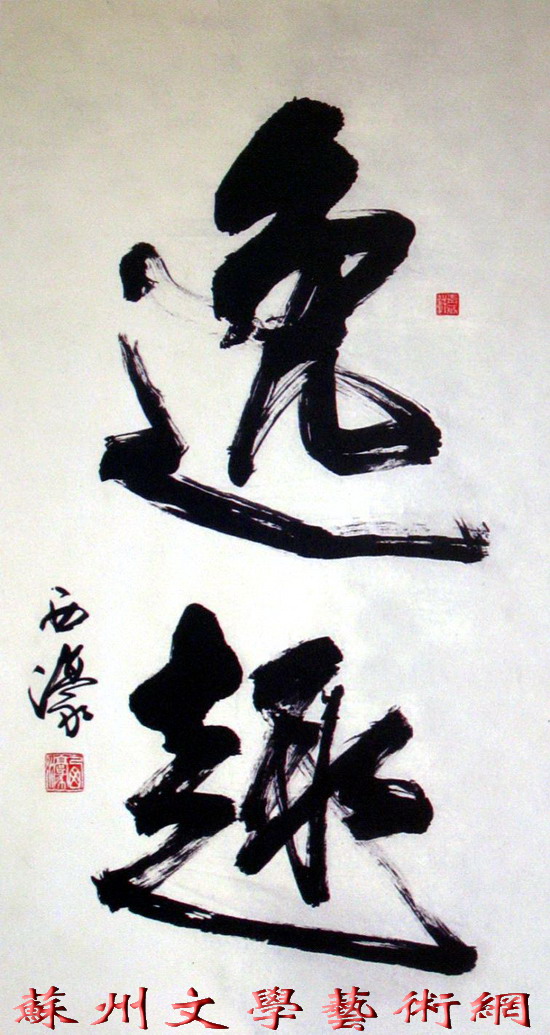 逸趣
西濠
蘇州文學藝術網